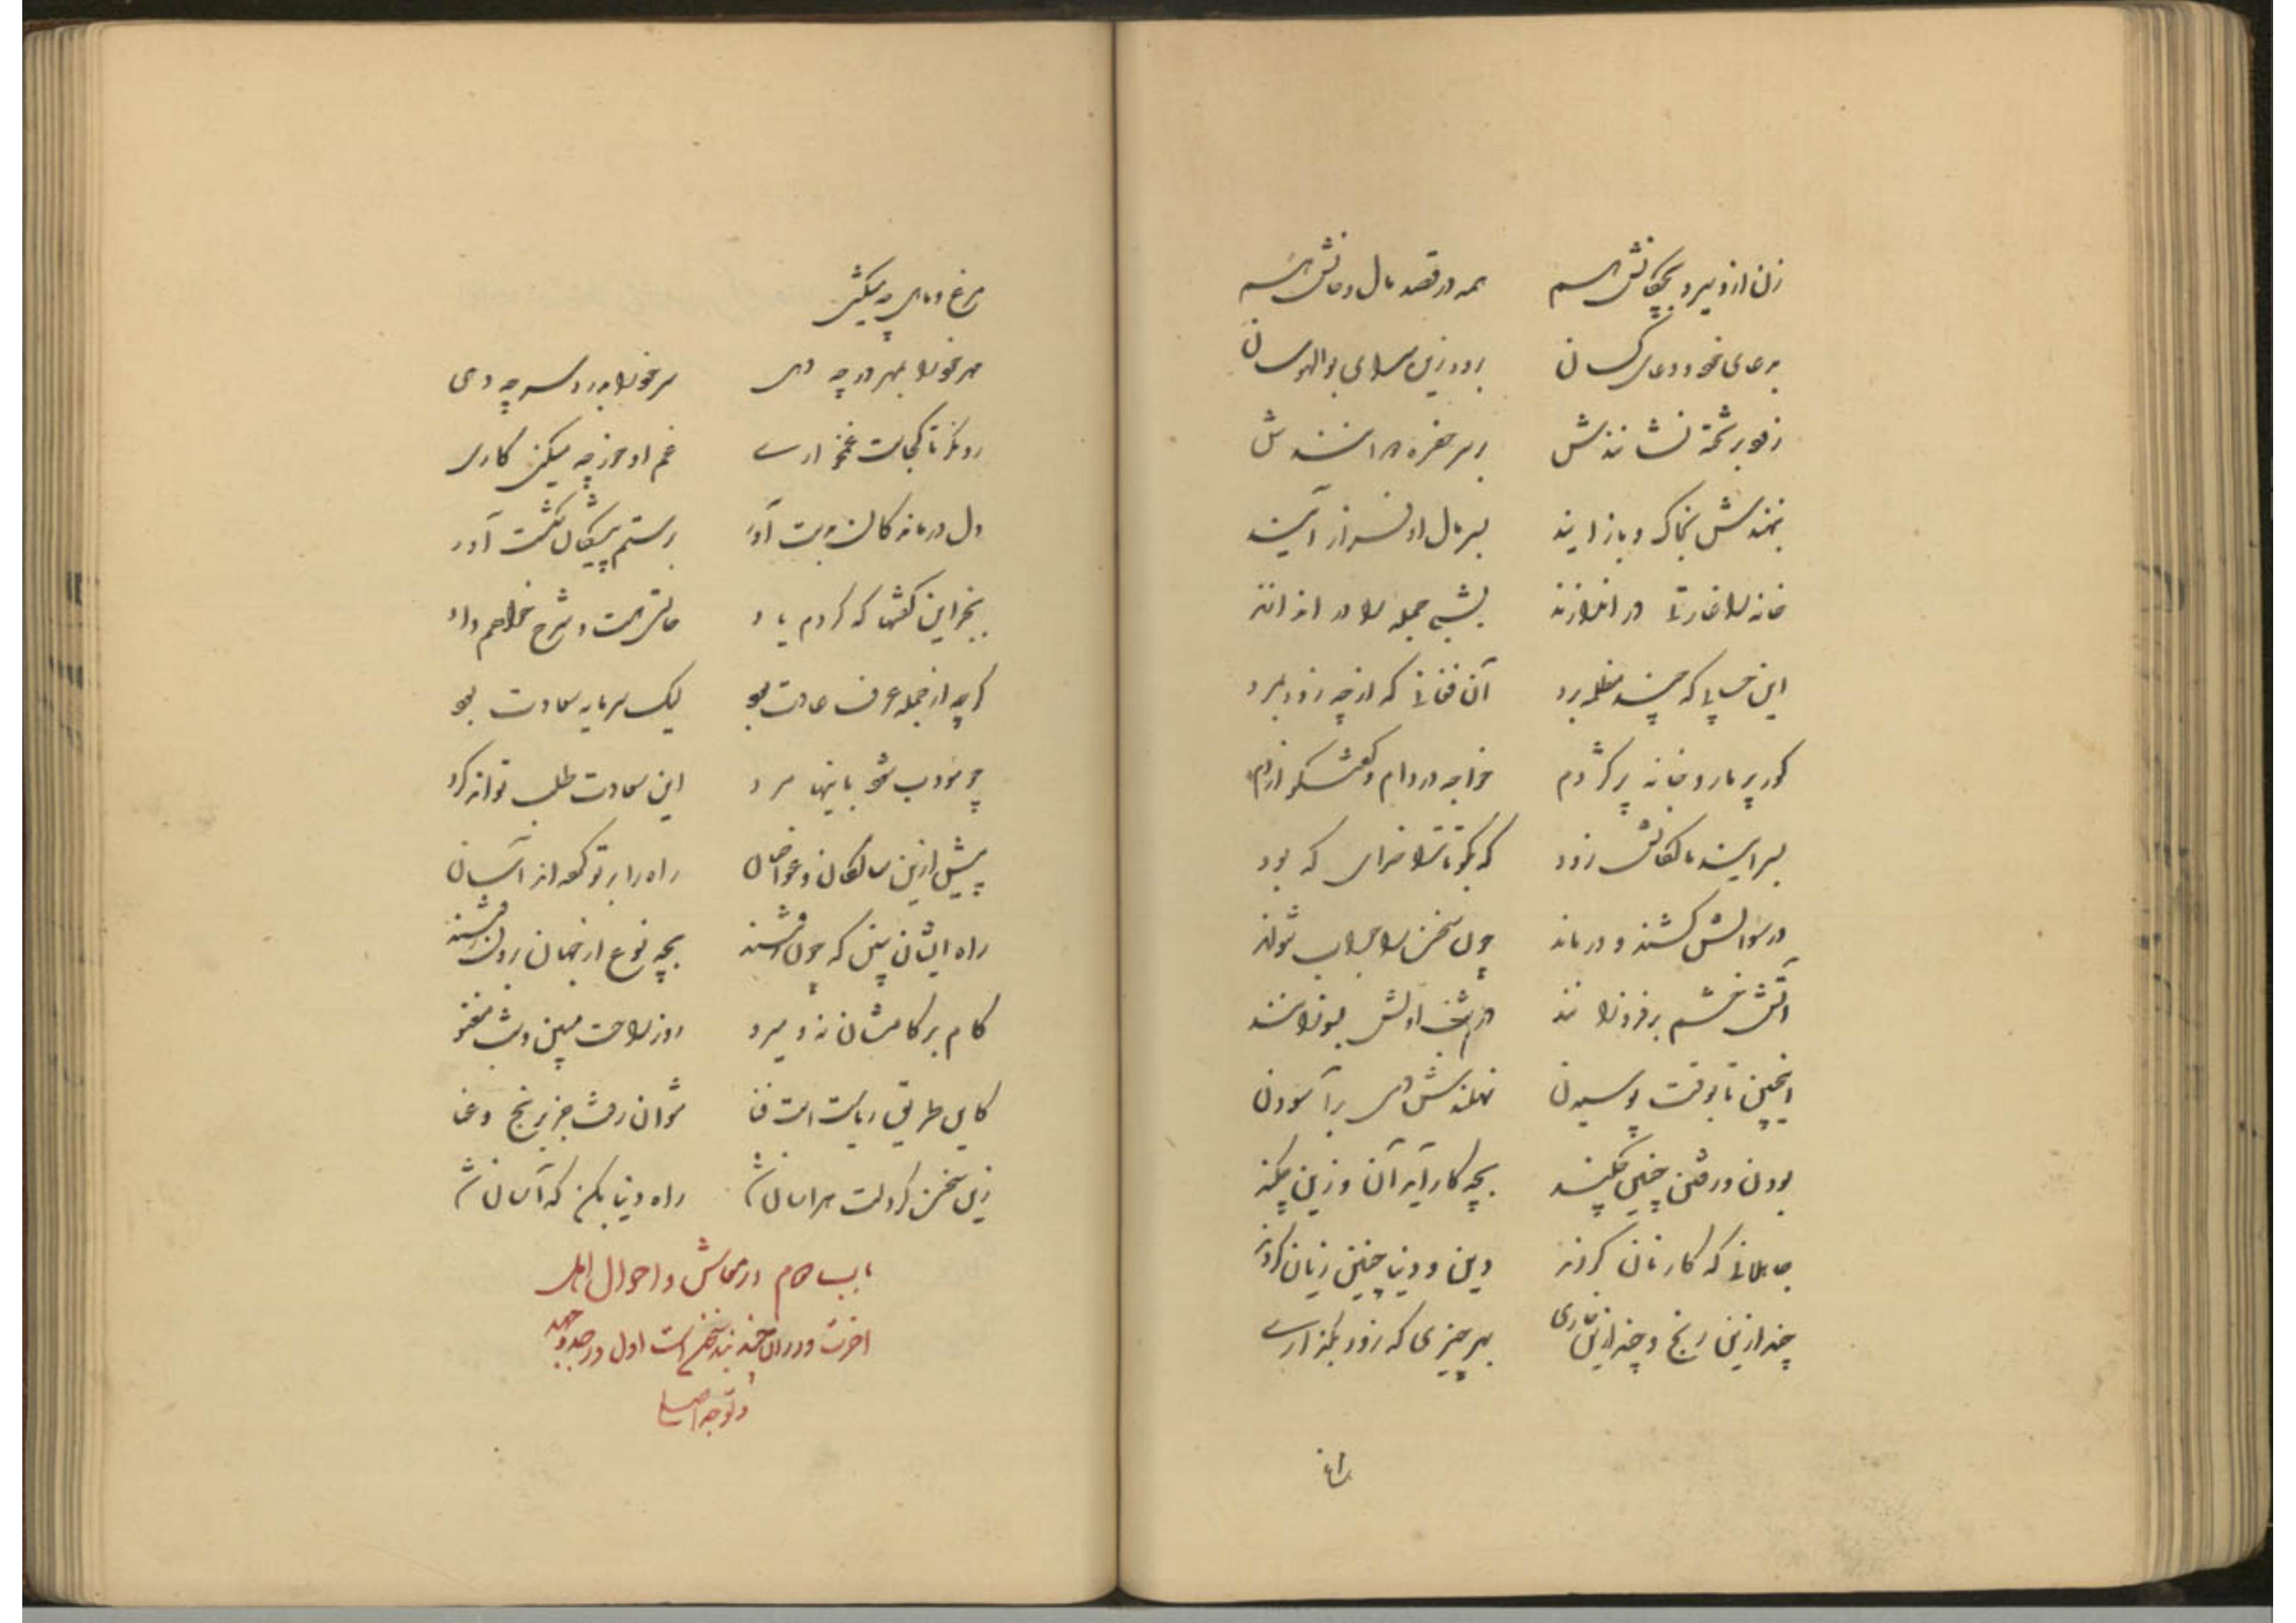 زن ازو سیر و بچگانش هم همه در قصد مال و جانش هم
بدعای خود و دعای کسان برود زین سرای بوالهوسان
زود بر تخته نشانندش بر سر حفره دوانندش
بنهندش بخاک و باز آیند بسر مال او فراز آیند
خانه را غارتی در اندازند بشبی جمله را در اندازند
این خسی را که چند مظلمه برد آن فغانی که از چه زود بمرد
گور پر مار و خانه پر کژدم خواجه در دام و گفتگو از دم
بسر آیند مالکانش زود که بگو تا ترا خدای که بود
در سؤالش کشند و درماند چون سخن را جواب نتواند
آتش خشم برفروزانند در شب اولش بسوزانند
اینچنین تا بوقت پوسیدن نهلندش دمی برآسودن
بودن و رفتن چنین چکند بچه کار آید آن و زین چکند
جاهلانی که کار نان کردند دین و دنیا چنین زیان کردند
چند ازین رنج و چند ازین خواری بهر چیزی که زود بگذاری
مرغ و ماهی چه میکشی
مهر خود را بمهر در چه دهی سر خود را بدرد سر چه دهی
رو نگر تا کجاست غمخواری غم او خور چه میکنی کاری
دل درماندگان بدست آور رستم پیگان شکست آور
بجز این نقشها که کردم یاد حالتی هست و شرح خواهم داد
گرچه از جمله عرف و عادت بود لیک سرمایه سعادت بود
چو مؤدب شود باینها مرد این سعادت طلب تواند کرد
پیش ازین سالکان و غواصان راه را بر تو کرده‌اند آسان
راه ایشان ببین که چون رفتند بچه نوع از جهان برون رفتند
گام بر گامشان نه و میرو روز راحت مبین و شب مغنو
کاین طریق ریاضت است و فنا نتوان رفت جز برنج و عنا
زین سخن گر دلت هراسان شد راه دنیا بکن که آسان شد
باب دوم در معاش و احوال اهل
آخرت و در آن چند سخن است اول در جد و جهد
و توجه اصلی